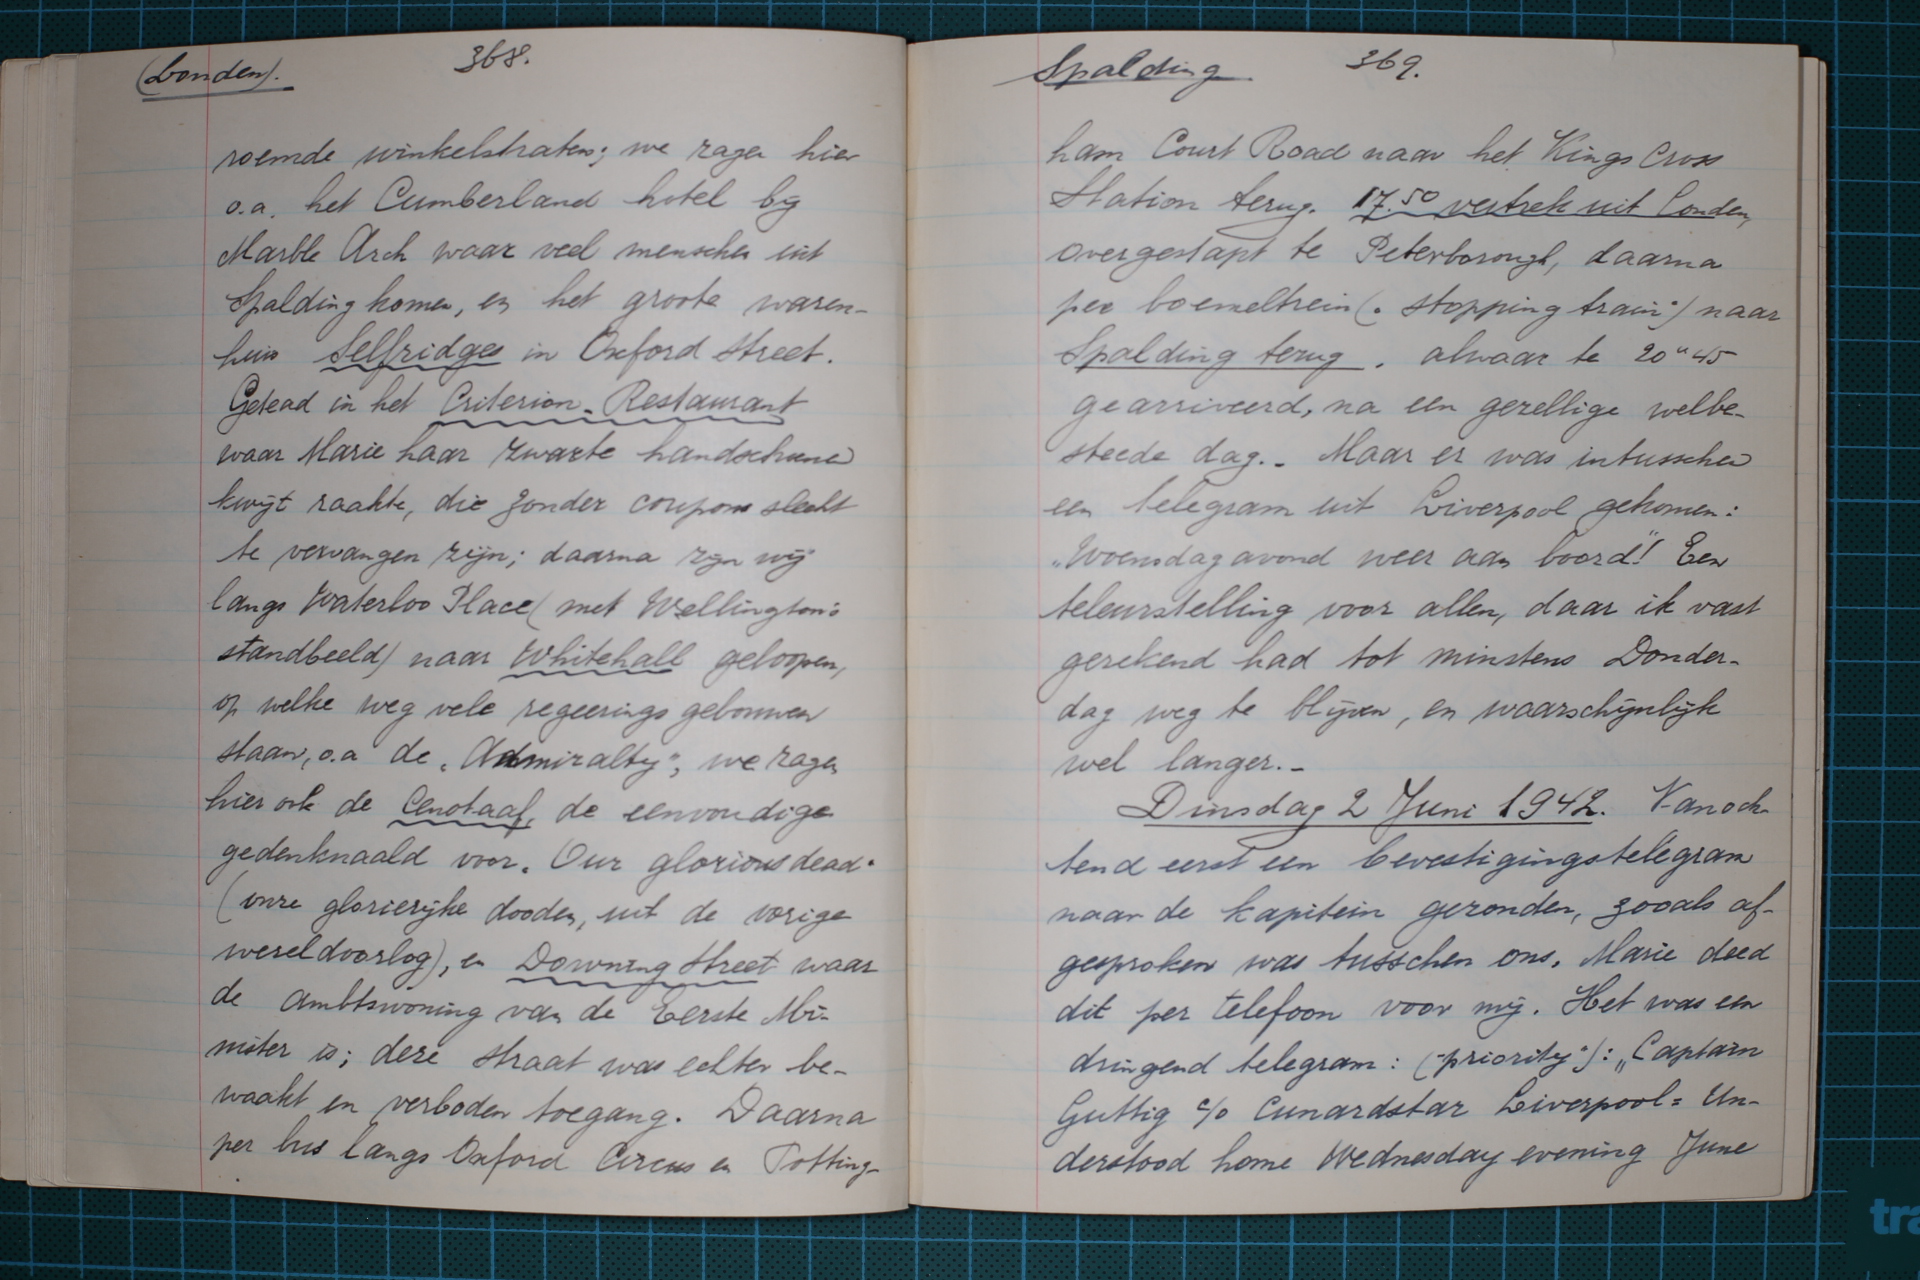 (Londen). 368.
roemde winkelstraten; we zagen hier
o.a. het Cumberland hotel bij
Marble Arch waar veel menschen uit
Spalding komen, en het groote waren-
huis Selfridges in Oxford Street.
Getead in het Criterion-Restaurant
waar Marie haar zwarte handschoenen
kwijt raakte, die zonder coupons slecht
te vervangen zijn; daarna zijn wij
langs Waterloo Place (met Wellington's
standbeeld) naar Whitehall geloopen,
op welke weg vele regeeringsgebouwen
staan, o.a. de „Admiralty", we zagen
hier ook de Cenotaaf, de eenvoudige
gedenknaald voor „Our glorious dead"
(onze glorierijke dooden, uit de vorige
wereldoorlog), en Downing Street waar
de ambtswoning van de Eerste Mi-
nister is; deze straat was echter be-
waakt en verboden toegang. Daarna
per bus langs Oxford Circus en Totting-
Spalding 369.
ham Court Road naar het Kings Cross
Station terug. 17.50 vertrek uit Londen,
overgestapt te Peterborough, daarna
per boemeltrein („stopping train") naar
Spalding terug, alwaar te 20u45
gearriveerd, na een gezellige welbe-
steede dag.- Maar er was intusschen
een telegram uit Liverpool gekomen:
„Woensdagavond weer aan boord"! Een
teleurstelling voor allen, daar ik vast
gerekend had tot minstens Donder-
dag weg te blijven, en waarschijnlijk
wel langer.-
Dinsdag 2 Juni 1942. Vanoch-
tend eerst een bevestigingstelegram
naar de kapitein gezonden, zooals af-
gesproken was tusschen ons. Marie deed
dit per telefoon voor mij. Het was een
dringend telegram: („priority"): „Captain
Guttig c/o Cunardstar Liverpool = Un-
derstood home Wednesday evening June
tra